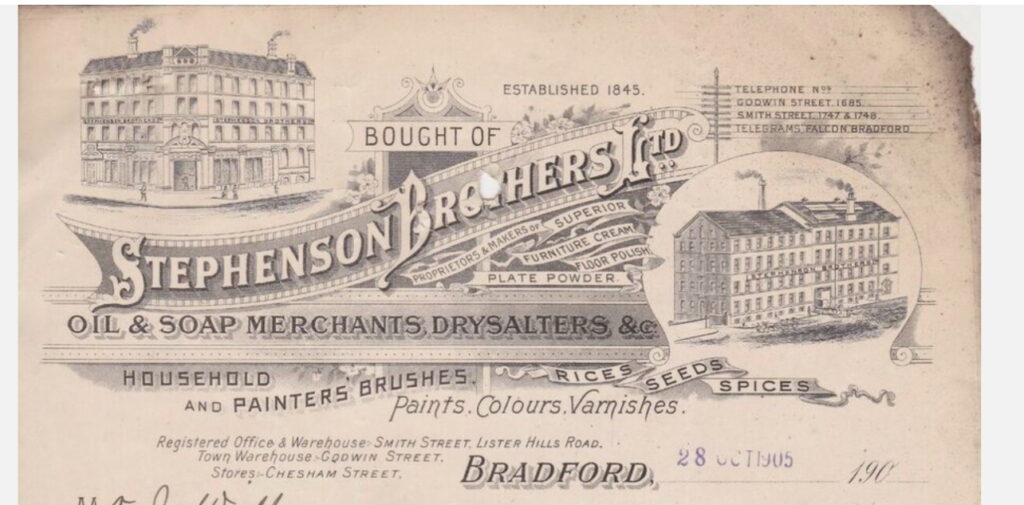 ESTABLISHED 1845.
TELEPHONE Nos
GODWIN STREET. 1685.
SMITH STREET. 1747 & 1748.
TELEGRAMS, FALCON, BRADFORD
BOUGHT OF
STEPHENSON BROTHERS LTD
STEPHENSON BROTHERS
STEPHENSON BROTHERS
PROPRIETORS & MAKERS OF SUPERIOR
FURNITURE CREAM
FLOOR POLISH
PLATE POWDER.
STEPHENSON BROTHERS
OIL & SOAP MERCHANTS, DRYSALTERS, &c.
HOUSEHOLD
AND PAINTERS' BRUSHES.
RICES SEEDS SPICES
Paints. Colours. Varnishes.
Registered Office & Warehouse:- SMITH STREET, LISTER HILLS ROAD.
Town Warehouse:- GODWIN STREET.
Stores:- CHESHAM STREET.
BRADFORD, 28 OCT 1905 190